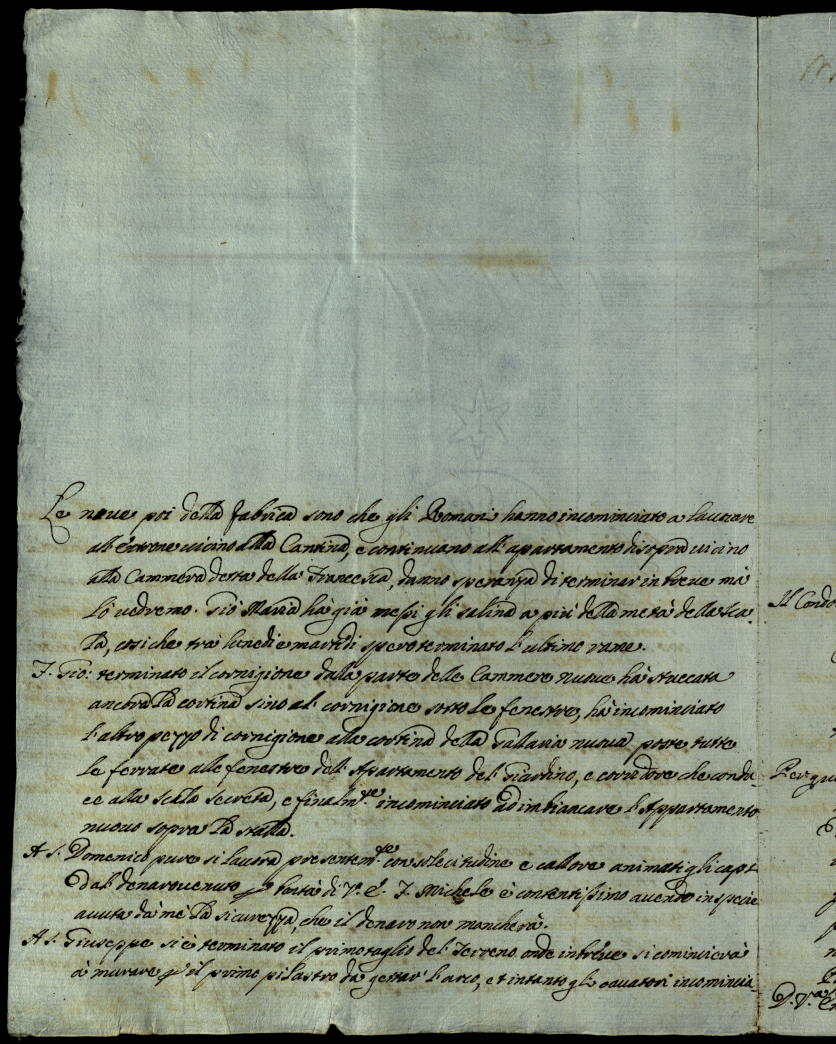 Le nuove poi della fabrica sono che gli Romani hanno incominciato a lavorare
al' entrone vicino alla Cantina, e continuano all' apartamento di sopra vicino
alla Cammera detta della Francesca, danno speranza di terminar in breve mà
lo vedremo. Gio Maria hà già messi gli salina a più della metà della sca-
la, cosiche trà lunedi e martedi spero terminato l'ultimo rame.
F. Gio: terminato il cornigione dalla parte delle Cammere nuove hà stuccata
ancora la cortina sino al' cornigione sotto le fenestre, hà incominciato
l'altro pezzo di cornigione alla cortina della Gallaria nuova poste tutte
le ferrate alle fenestre del' Apartamento del' Giardino, e corridore che condu-
ce alla scala secreta, e finalm.te incominciato ad imbiancare l'Appartamento
nuovo sopra la stalla.
A S. Domenico pure si lavora presentem.te con solecitudine e callore animati gli capi
dal' denaro venuto p bontà di V. E. F. Michele è contentissimo avendo in specie
avuta dà mè la sicurezza, che il denaro non mancherà.
A S. Giuseppe si è terminato il primo taglio del' Terreno onde in breve si comincierà
à murare p il primo pilastro da gettar' l'arco, et intanto gli cavatori incomincia-
Il Condo
Per qu
D. V.a E